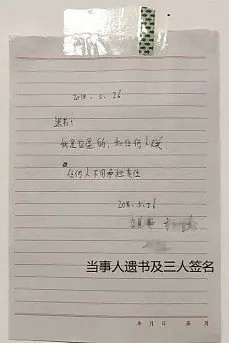 2018.5.26
遗书:
我是自愿的,和任何人无
关 任何人不用承担责任
2018.5.26
当事人遗书及三人签名
年 月 日 第 页